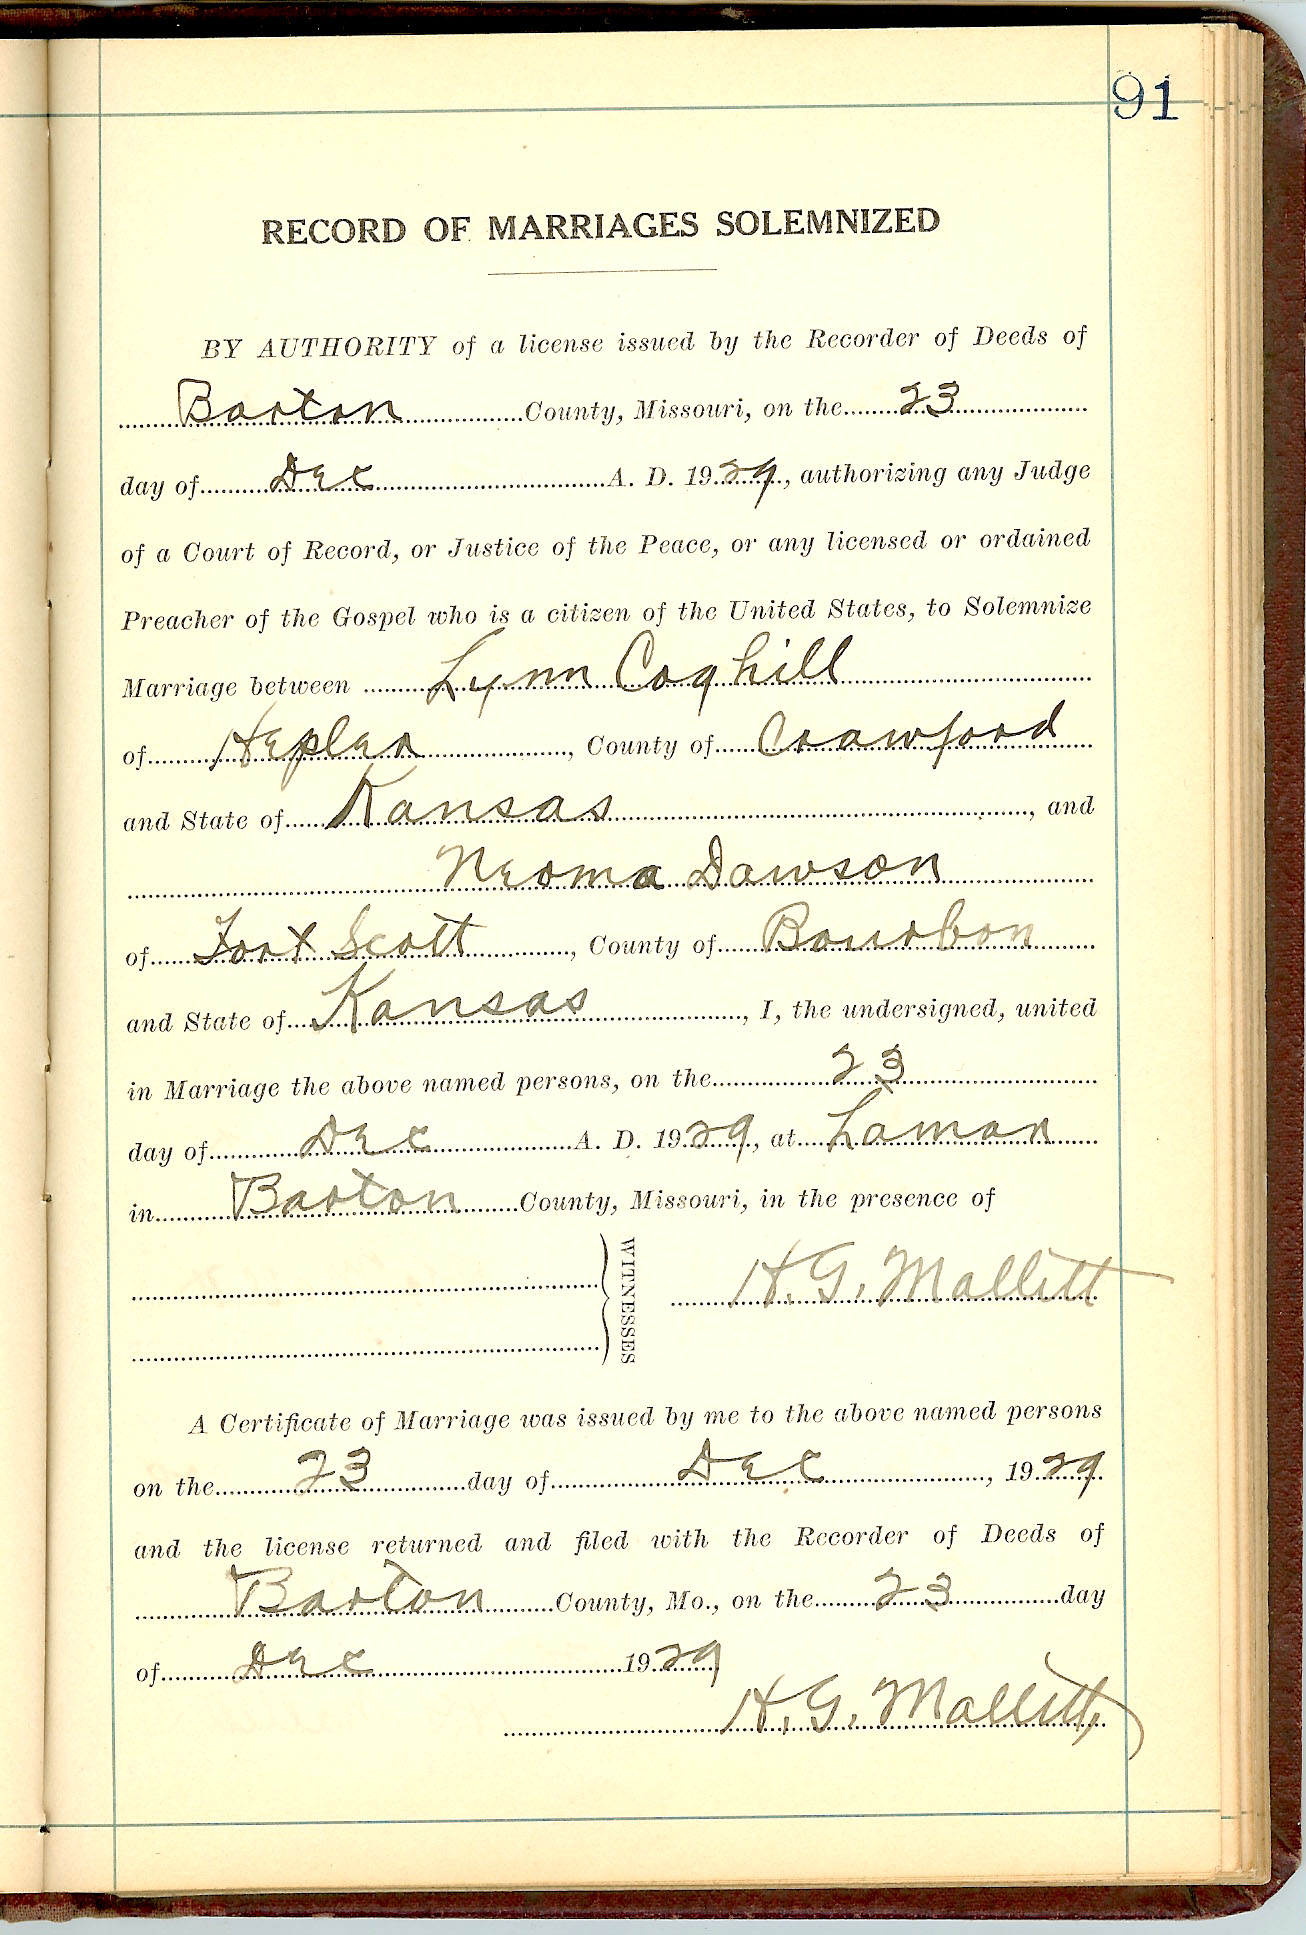 91
RECORD OF MARRIAGES SOLEMNIZED
BY AUTHORITY of a license issued by the Recorder of Deeds of
Barton County, Missouri, on the 23
day of Dec A. D. 1929, authorizing any Judge
of a Court of Record, or Justice of the Peace, or any licensed or ordained
Preacher of the Gospel who is a citizen of the United States, to Solemnize
Marriage between Lynn Coghill
of Hepler, County of Crawford
and State of Kansas, and
Neoma Dawson
of Fort Scott, County of Bourbon
and State of Kansas, I, the undersigned, united
in Marriage the above named persons, on the 23
day of Dec A. D. 1929, at Lamar
in Barton County, Missouri, in the presence of
WITNESSES H. G. Mallitt
A Certificate of Marriage was issued by me to the above named persons
on the 23 day of Dec, 1929
and the license returned and filed with the Recorder of Deeds of
Barton County, Mo., on the 23 day
of Dec 1929
H. G. Mallitt